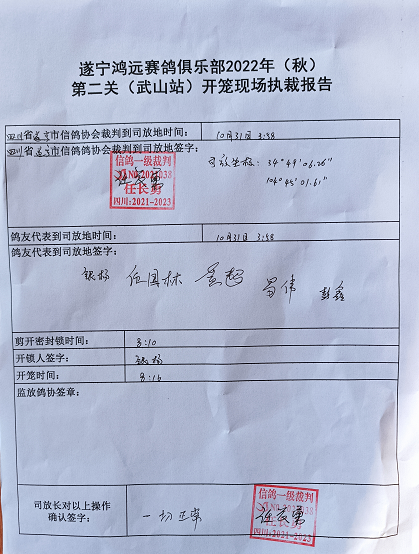 遂宁鸿远赛鸽俱乐部2022年（秋）
第二关（武山站）开笼现场执裁报告
四川省遂宁市信鸽协会裁判到司放地时间： 10月31日 3:58
四川省遂宁市信鸽协会裁判到司放地签字：
司放坐标：34°49′06.26″
104°45′01.61″
信鸽一级裁判
任长勇
四川:2021-2023
鸽友代表到司放地时间： 10月31日 3:58
鸽友代表到司放地签字：
银杨 任国林
剪开密封锁时间： 8:10
开锁人签字： 银杨
开笼时间： 8:16
监放鸽协签章：
司放长对以上操作
确认签字： 一切正常
信鸽一级裁判
任长勇
四川:2021-2023